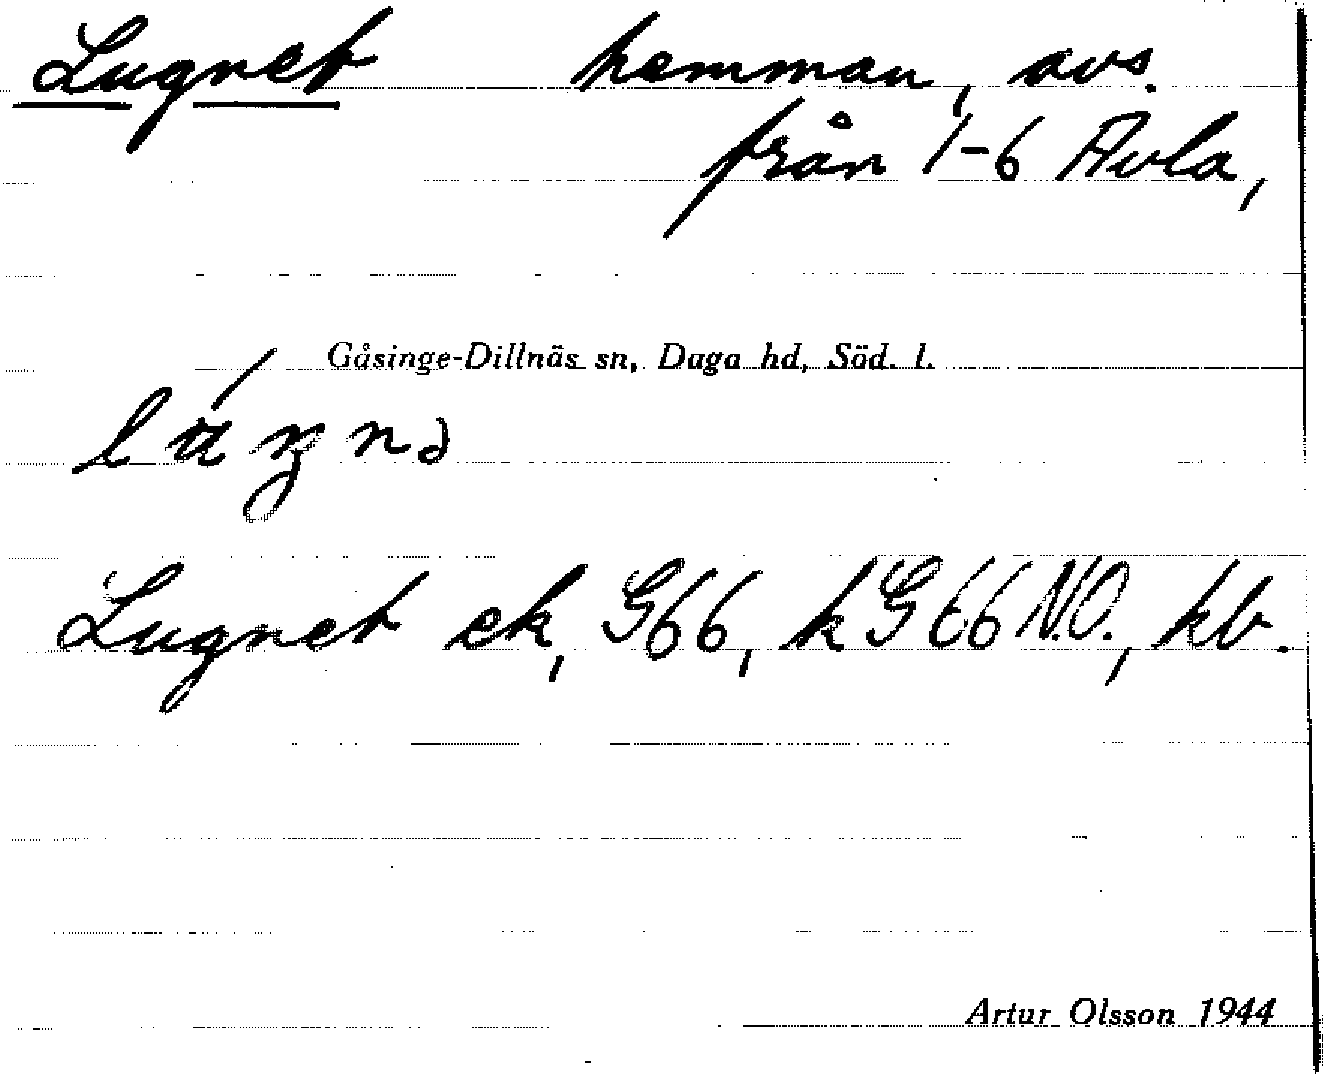 Lugnet hemman, avs.
från 1-6 Avla,
Gåsinge-Dillnäs sn, Daga hd, Söd. l.
Lugnet ek, G66, k G66 N.O., kb.
Artur Olsson 1944